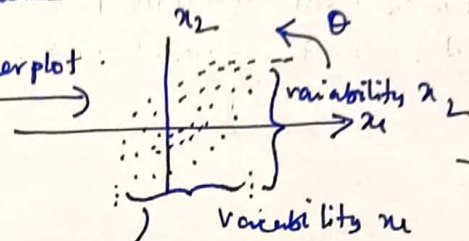 x₂
θ
erplot.
variability x₂
x₁
variability x₁